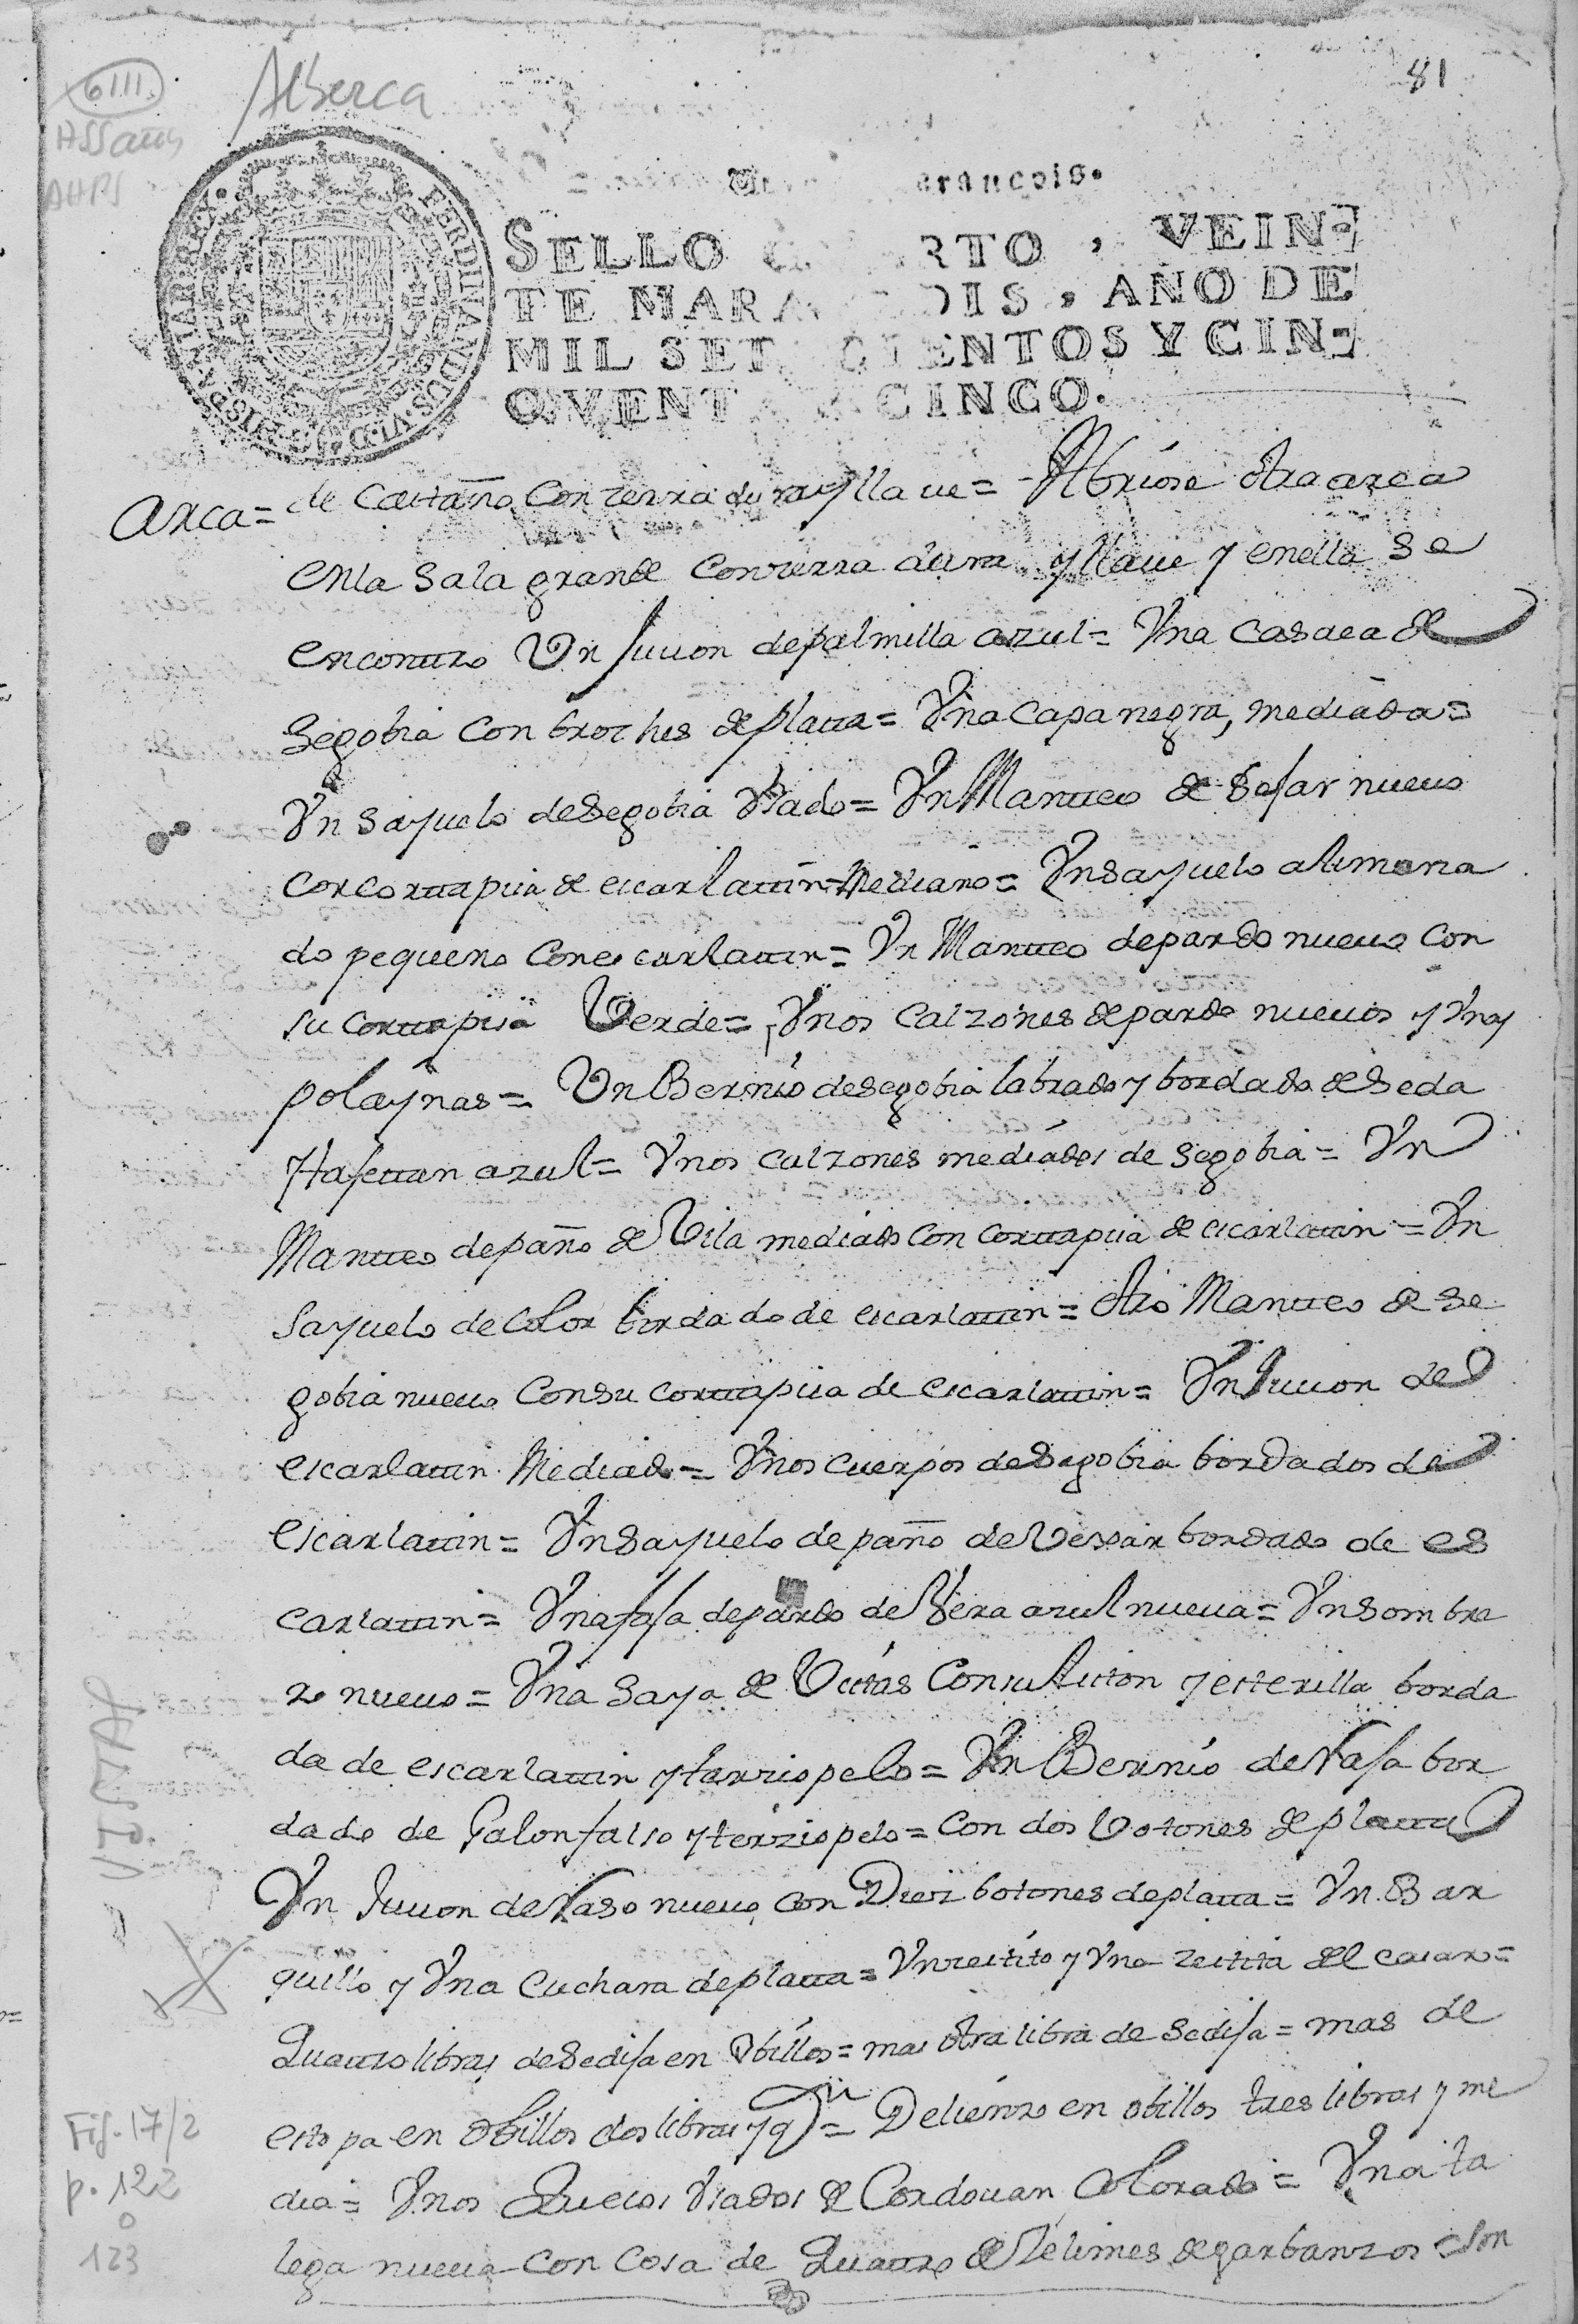 6III.
Alberca
81
AHPS
FERDINANDUS·VI·D·G·HISPANIAR·REX·
SELLO RTO, VEIN-
TE MARA DIS, AÑO DE
MIL SET CIENTOS Y CIN-
QVENTA CINCO.
Arca= de Castaño Con zerradura y llaue= Abriose otra arca
en la Sala grande Con zerradura y llaue y en ella se
encontro Un Juuon de palmilla azul= Vna Casaca de
Segobia Con broches de platta= Vna Capa negra, mediada=
Vn sayuelo de Segobia Vsado= Vn Mantteo de Befar nueuo
con corttapisa de escarlattin Mediano= Vn Sayuelo alimona
do pequeno Con escarlattin= Vn Mantteo de pardo nueuo Con
su corttapisa Verde= Vnos Calzones de pardo nueuos y Vnas
polaynas= Un Bernio de segobia labrado y bordado de Seda
y tafettan azul= Vnos calzones mediados de Segobia= Vn
Mantteo de paño de Vila mediado con corttapisa de escarlattin= Vn
Sayuelo de Color bordado de escarlattin= Otro Mantteo de Se
gobia nueuo Con su corttapisa de escarlattin= Vn Juuon de
escarlattin Mediado= Vnos cuerpos de Segobia bordados de
escarlattin= Vn Sayuelo de paño de Vexar bordado de es
carlattin= Vna faja de pardo de Vera azul nueua= Vn Sombre
ro nueuo= Vna Saya de Vistas Con su liston y esterilla borda
da de escarlattin y terziopelo= Vn Bernio de Rafa bor
dado de Galon falso y terziopelo= Con dos Votones de platta
Vn Juuon de Raso nueuo con Diez botones de platta= Vn Bar
quillo y Vna Cuchara de platta= Vn zestito y Vna zestita del casar=
Quattro libras de Sedifa en Obillos= mas otra libra de Sedifa= mas de
estopa en Obillos dos libras y q.n= De lienzo en obillos tres libras y me
dia= Vnos Zuecos Vsados de Cordouan Colorado= Vna ta
lega nueua Con Cosa de Quattro Zelimes de garbanzos= Son
- VISTAS
Fig. 17/2
p. 122
o
123